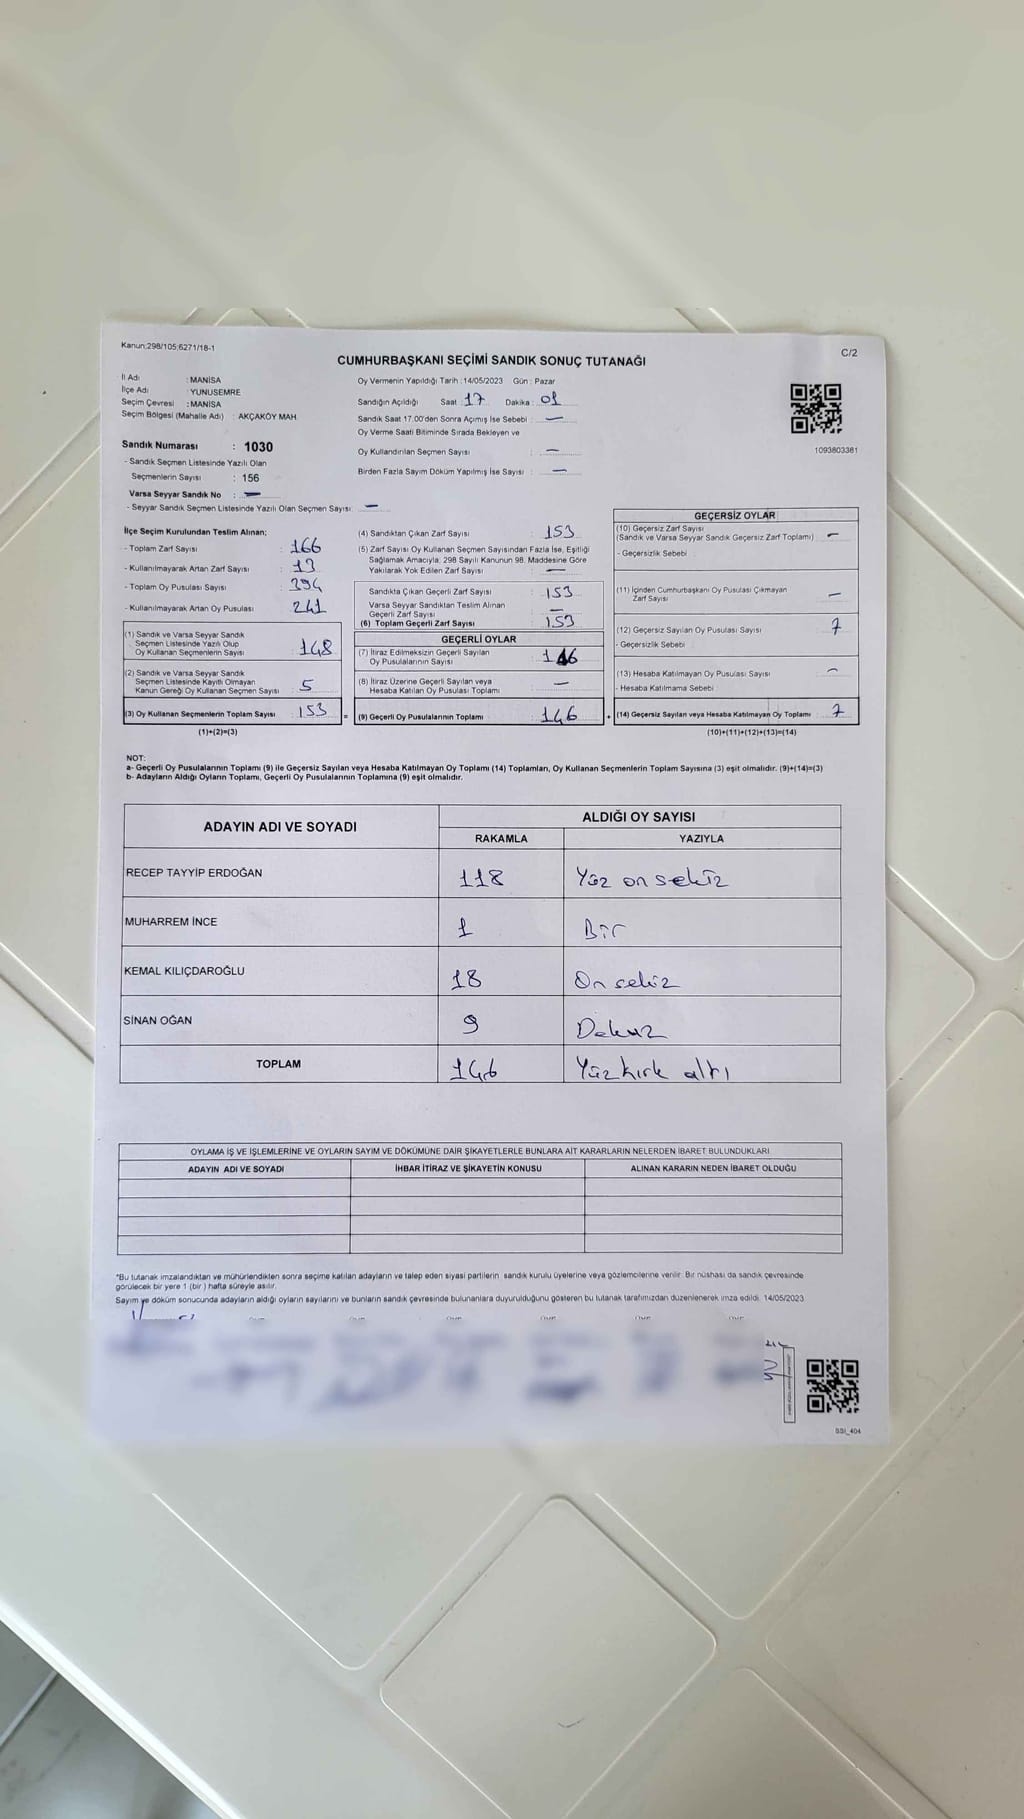 Kanun:298/105,6271/18-1
C/2
CUMHURBAŞKANI SEÇİMİ SANDIK SONUÇ TUTANAĞI
İl Adı : MANİSA
İlçe Adı : YUNUSEMRE
Seçim Çevresi : MANİSA
Seçim Bölgesi (Mahalle Adı) : AKÇAKÖY MAH.
Oy Vermenin Yapıldığı Tarih :14/05/2023 Gün : Pazar
Sandığın Açıldığı Saat : 17 Dakika : 01
Sandık Saat 17.00'den Sonra Açımış İse Sebebi : —
Oy Verme Saati Bitiminde Sırada Bekleyen ve
Oy Kullandırılan Seçmen Sayısı : —
Birden Fazla Sayım Döküm Yapılmış İse Sayısı : —
1093803381
Sandık Numarası : 1030
- Sandık Seçmen Listesinde Yazılı Olan
Seçmenlerin Sayısı : 156
Varsa Seyyar Sandık No : —
- Seyyar Sandık Seçmen Listesinde Yazılı Olan Seçmen Sayısı: —
İlçe Seçim Kurulundan Teslim Alınan;
- Toplam Zarf Sayısı : 166
- Kullanılmayarak Artan Zarf Sayısı : 13
- Toplam Oy Pusulası Sayısı : 394
- Kullanılmayarak Artan Oy Pusulası : 241
(1) Sandık ve Varsa Seyyar Sandık
Seçmen Listesinde Yazılı Olup
Oy Kullanan Seçmenlerin Sayısı : 148
(2) Sandık ve Varsa Seyyar Sandık
Seçmen Listesinde Kayıtlı Olmayan
Kanun Gereği Oy Kullanan Seçmen Sayısı : 5
(3) Oy Kullanan Seçmenlerin Toplam Sayısı : 153 =
(1)+(2)=(3)
(4) Sandıktan Çıkan Zarf Sayısı : 153
(5) Zarf Sayısı Oy Kullanan Seçmen Sayısından Fazla İse, Eşitliği
Sağlamak Amacıyla; 298 Sayılı Kanunun 98. Maddesine Göre
Yakılarak Yok Edilen Zarf Sayısı : —
Sandıkta Çıkan Geçerli Zarf Sayısı : 153
Varsa Seyyar Sandıktan Teslim Alınan
Geçerli Zarf Sayısı : —
(6) Toplam Geçerli Zarf Sayısı : 153
GEÇERLİ OYLAR
(7) İtiraz Edilmeksizin Geçerli Sayılan
Oy Pusulalarının Sayısı : 146
(8) İtiraz Üzerine Geçerli Sayılan veya
Hesaba Katılan Oy Pusulası Toplamı : —
(9) Geçerli Oy Pusulalarının Toplamı : 146 +
GEÇERSİZ OYLAR
(10) Geçersiz Zarf Sayısı
(Sandık ve Varsa Seyyar Sandık Geçersiz Zarf Toplamı) : —
- Geçersizlik Sebebi :
(11) İçinden Cumhurbaşkanı Oy Pusulası Çıkmayan
Zarf Sayısı : —
(12) Geçersiz Sayılan Oy Pusulası Sayısı : 7
- Geçersizlik Sebebi :
(13) Hesaba Katılmayan Oy Pusulası Sayısı : —
- Hesaba Katılmama Sebebi :
(14) Geçersiz Sayılan veya Hesaba Katılmayan Oy Toplamı : 7
(10)+(11)+(12)+(13)=(14)
NOT:
a- Geçerli Oy Pusulalarının Toplamı (9) ile Geçersiz Sayılan veya Hesaba Katılmayan Oy Toplamı (14) Toplamları, Oy Kullanan Seçmenlerin Toplam Sayısına (3) eşit olmalıdır. (9)+(14)=(3)
b- Adayların Aldığı Oyların Toplamı, Geçerli Oy Pusulalarının Toplamına (9) eşit olmalıdır.
ADAYIN ADI VE SOYADI
ALDIĞI OY SAYISI
RAKAMLA YAZIYLA
RECEP TAYYİP ERDOĞAN 118 Yüz on sekiz
MUHARREM İNCE 1 Bir
KEMAL KILIÇDAROĞLU 18 On sekiz
SİNAN OĞAN 9 Dokuz
TOPLAM 146 Yüzkırk altı
OYLAMA İŞ VE İŞLEMLERİNE VE OYLARIN SAYIM VE DÖKÜMÜNE DAİR ŞİKAYETLERLE BUNLARA AİT KARARLARIN NELERDEN İBARET BULUNDUKLARI
ADAYIN ADI VE SOYADI İHBAR İTİRAZ VE ŞİKAYETİN KONUSU ALINAN KARARIN NEDEN İBARET OLDUĞU
*Bu tutanak imzalandıktan ve mühürlendikten sonra seçime katılan adayların ve talep eden siyasi partilerin sandık kurulu üyelerine veya gözlemcilerine verilir. Bir nüshası da sandık çevresinde
görülecek bir yere 1 (bir ) hafta süreyle asılır.
Sayım ve döküm sonucunda adayların aldığı oyların sayılarını ve bunların sandık çevresinde bulunanlara duyurulduğunu gösteren bu tutanak tarafımızdan düzenlenerek imza edildi. 14/05/2023
SSI_404